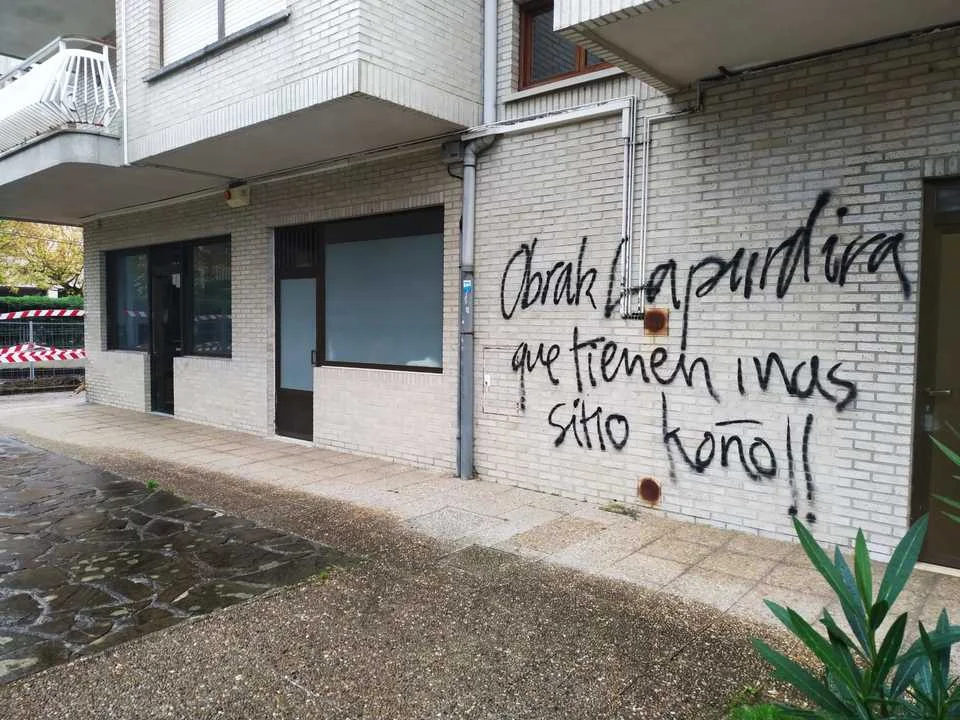 Obrak Lapurdira
que tienen mas
sitio koño!!